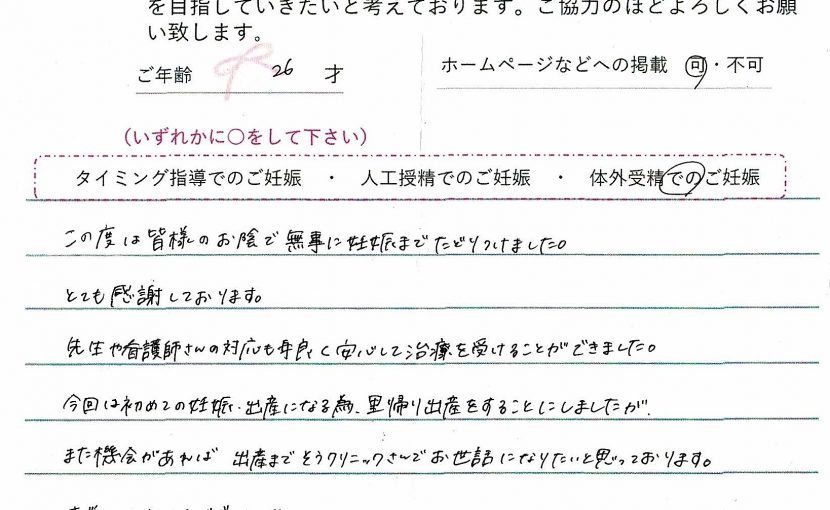 を目指していきたいと考えております。ご協力のほどよろしくお願
い致します。
ご年齢 26 才
ホームページなどへの掲載 可・不可
(いずれかに〇をして下さい)
タイミング指導でのご妊娠 ・ 人工授精でのご妊娠 ・ 体外受精でのご妊娠
この度は皆様のお陰で無事に妊娠までたどりつけました。
とても感謝しております。
先生や看護師さんの対応も良く安心して治療を受けることができました。
今回は初めての妊娠・出産になる為、里帰り出産をすることにしましたが、
また機会があれば 出産までそうクリニックさんでお世話になりたいと思っております。